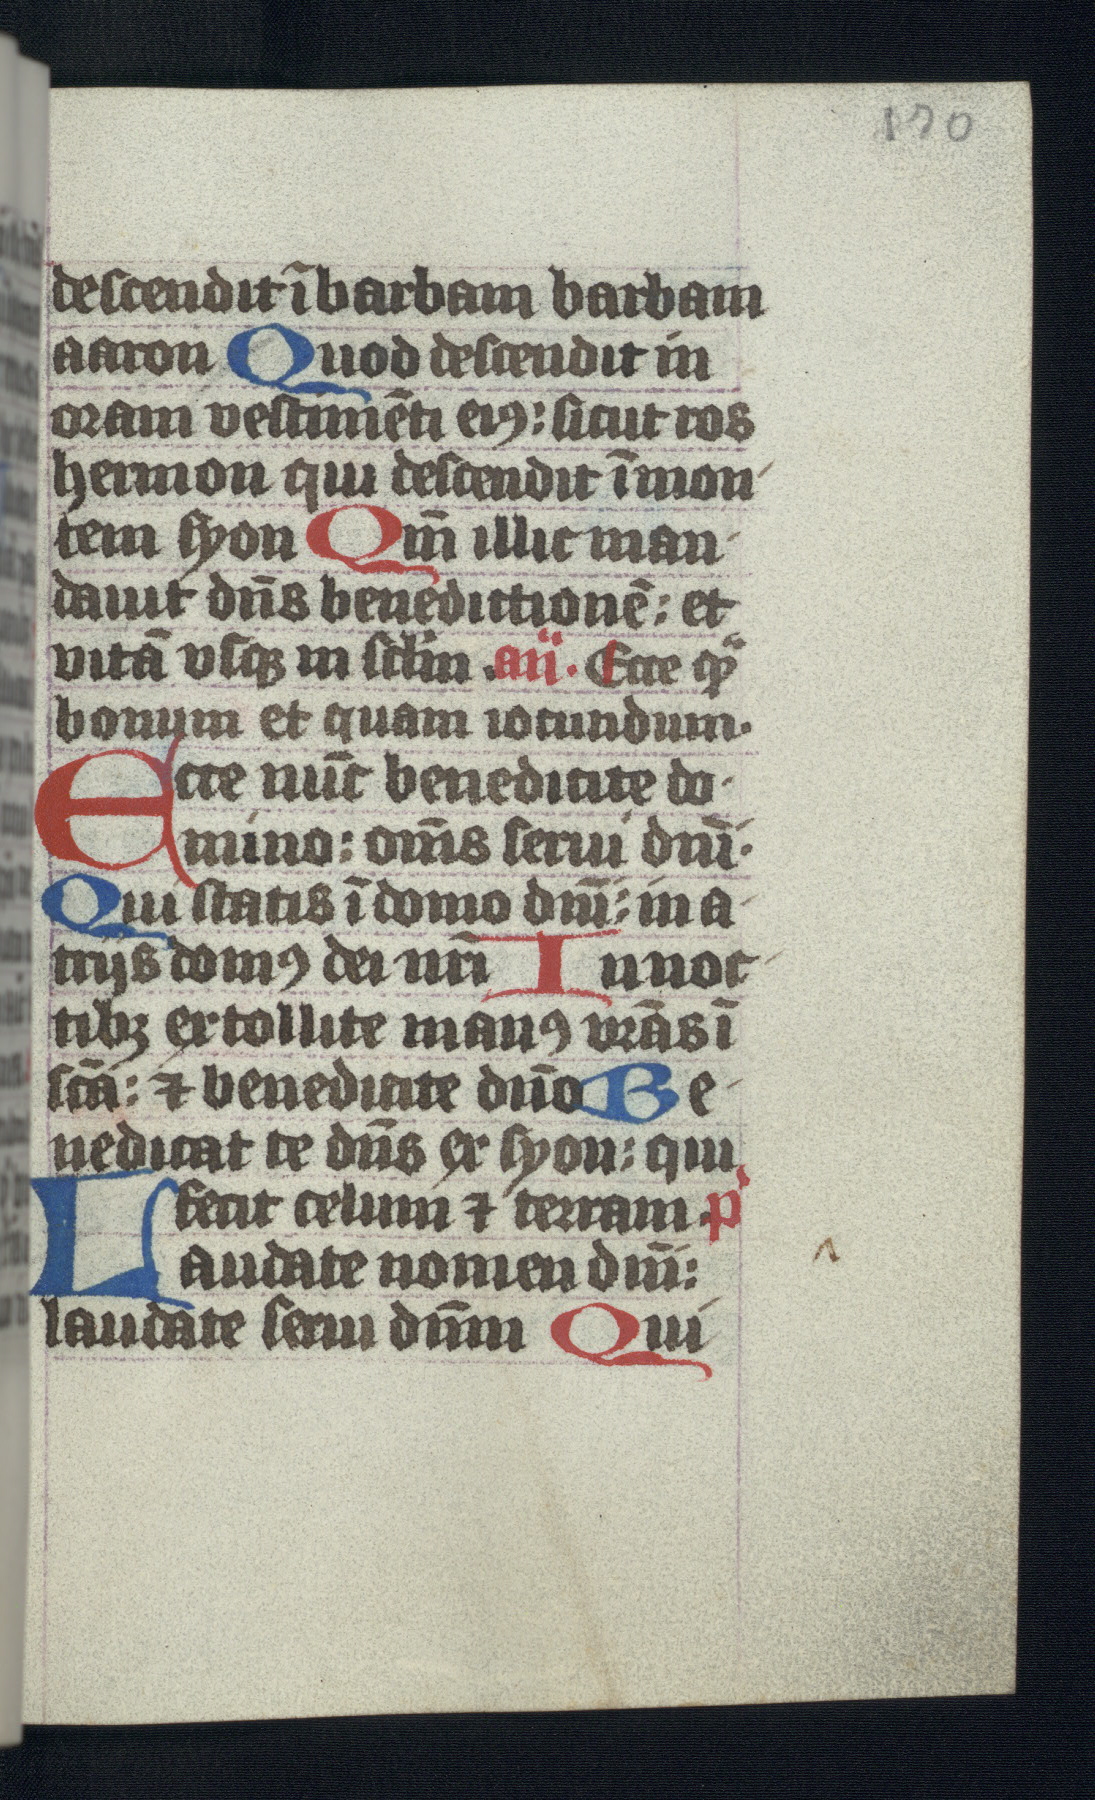 170
descendit ī barbam barbam
aaron Quod descendit in
oram vestimēti eiꝰ: sicut ros
hermon qui descendit ī mon
tem syon Qm̄ illic man
dauit dn̄s benedictionē: et
vitā vsqꝫ in scl̄m. an̄. Ecce qͣ
bonum et quam iocundum.
Ecce nūc benedicite do
mino: om̄s serui dn̄i.
Qui statis ī domo dn̄i: in a
trijs domꝰ dei nr̄i In noc
tibꝫ extollite manꝰ vr̄as ī
sc̄a: ⁊ benedicite dn̄o Be
nedicat te dn̄s ex syon: qui
fecit celum ⁊ terram. p̄
Laudate nomen dn̄i:
laudate serui dn̄m Qui